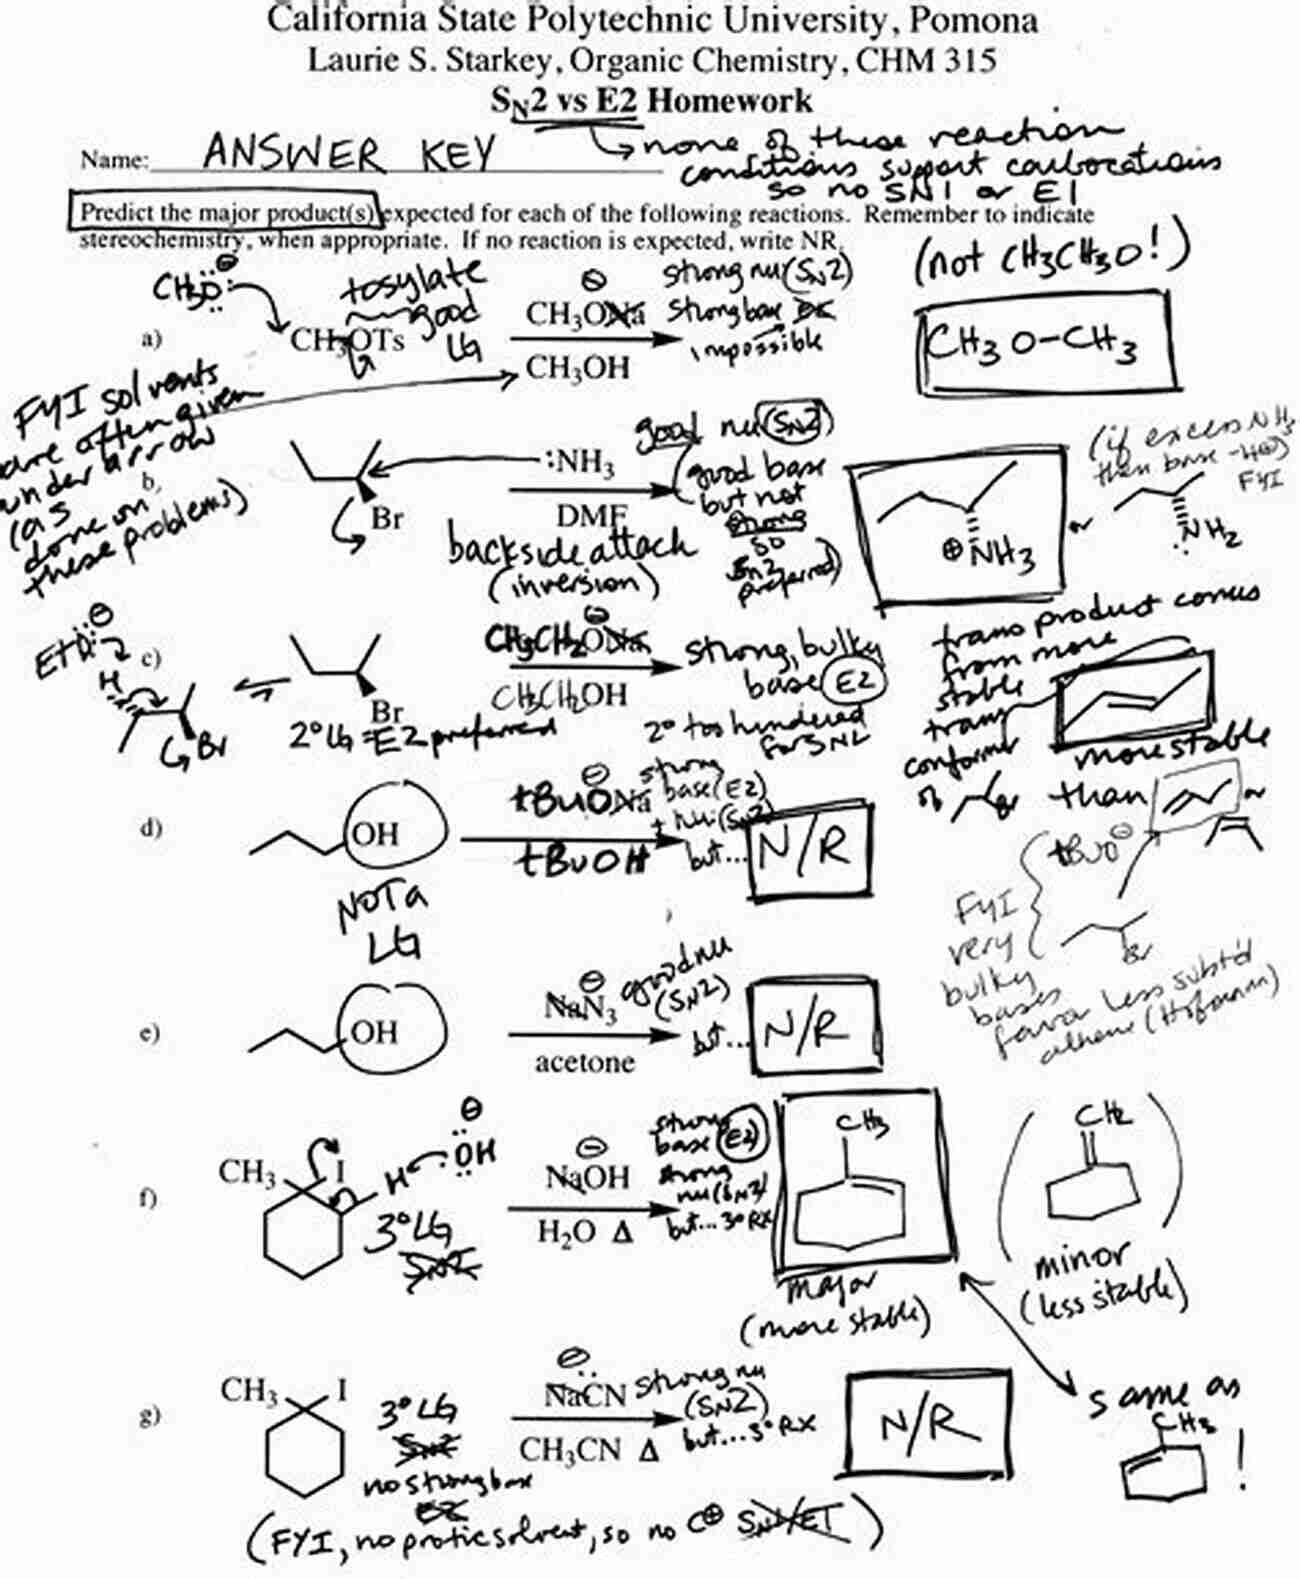 California State Polytechnic University, Pomona
Laurie S. Starkey, Organic Chemistry, CHM 315
SN2 vs E2 Homework
Name: ANSWER KEY
→ none of these reaction
conditions support carbocations
so no SN1 or E1
Predict the major product(s) expected for each of the following reactions. Remember to indicate
stereochemistry, when appropriate. If no reaction is expected, write NR.
(not CH3CH3O!)
CH3O:⊖
tosylate
good
LG
a)
CH3OTs
⊖
CH3ONa
CH3OH
strong nu (SN2)
strong base E2
impossible
CH3O-CH3
FYI solvents
are often given
under arrow
(as
done on
these problems)
b,
Br
:NH3
DMF
backside attack
(inversion)
good nu (SN2)
good base
but not
strong
so
SN2
preferred)
⊕NH3
or
(if excess NH3
then base -H⊕)
FYI
NH2
c)
EtO:⊖
H
Br
Br
2° LG = E2 preferred
⊖
CH3CH2ONa
CH3CH2OH
strong, bulky
base E2
2° too hindered
for SN2
trans product comes
from more
stable
trans
conformer
of
Br
more stable
than
or
d)
OH
NOT a
LG
⊖
tBuONa
tBuOH
strong
base (E2)
+ nu: (SN2)
but...
N/R
FYI
very
bulky
bases
favor less subst'd
alkene (Hofmann)
tBuO⊖
Br
e)
OH
⊖
NaN3
acetone
good nu
(SN2)
but...
N/R
f)
CH3
I
H
⊖
OH
3° LG
SN2
⊖
NaOH
H2O Δ
strong
base (E2)
strong
nu (SN2)
but... 3° RX
CH3
major
(more stable)
CH2
minor
(less stable)
same as
CH3
!
g)
CH3
I
3° LG
SN2
no strong base
E2
⊖
NaCN
CH3CN Δ
strong nu
(SN2)
but...3° RX
N/R
(FYI, no protic solvent, so no C⊕ SN1/E1)